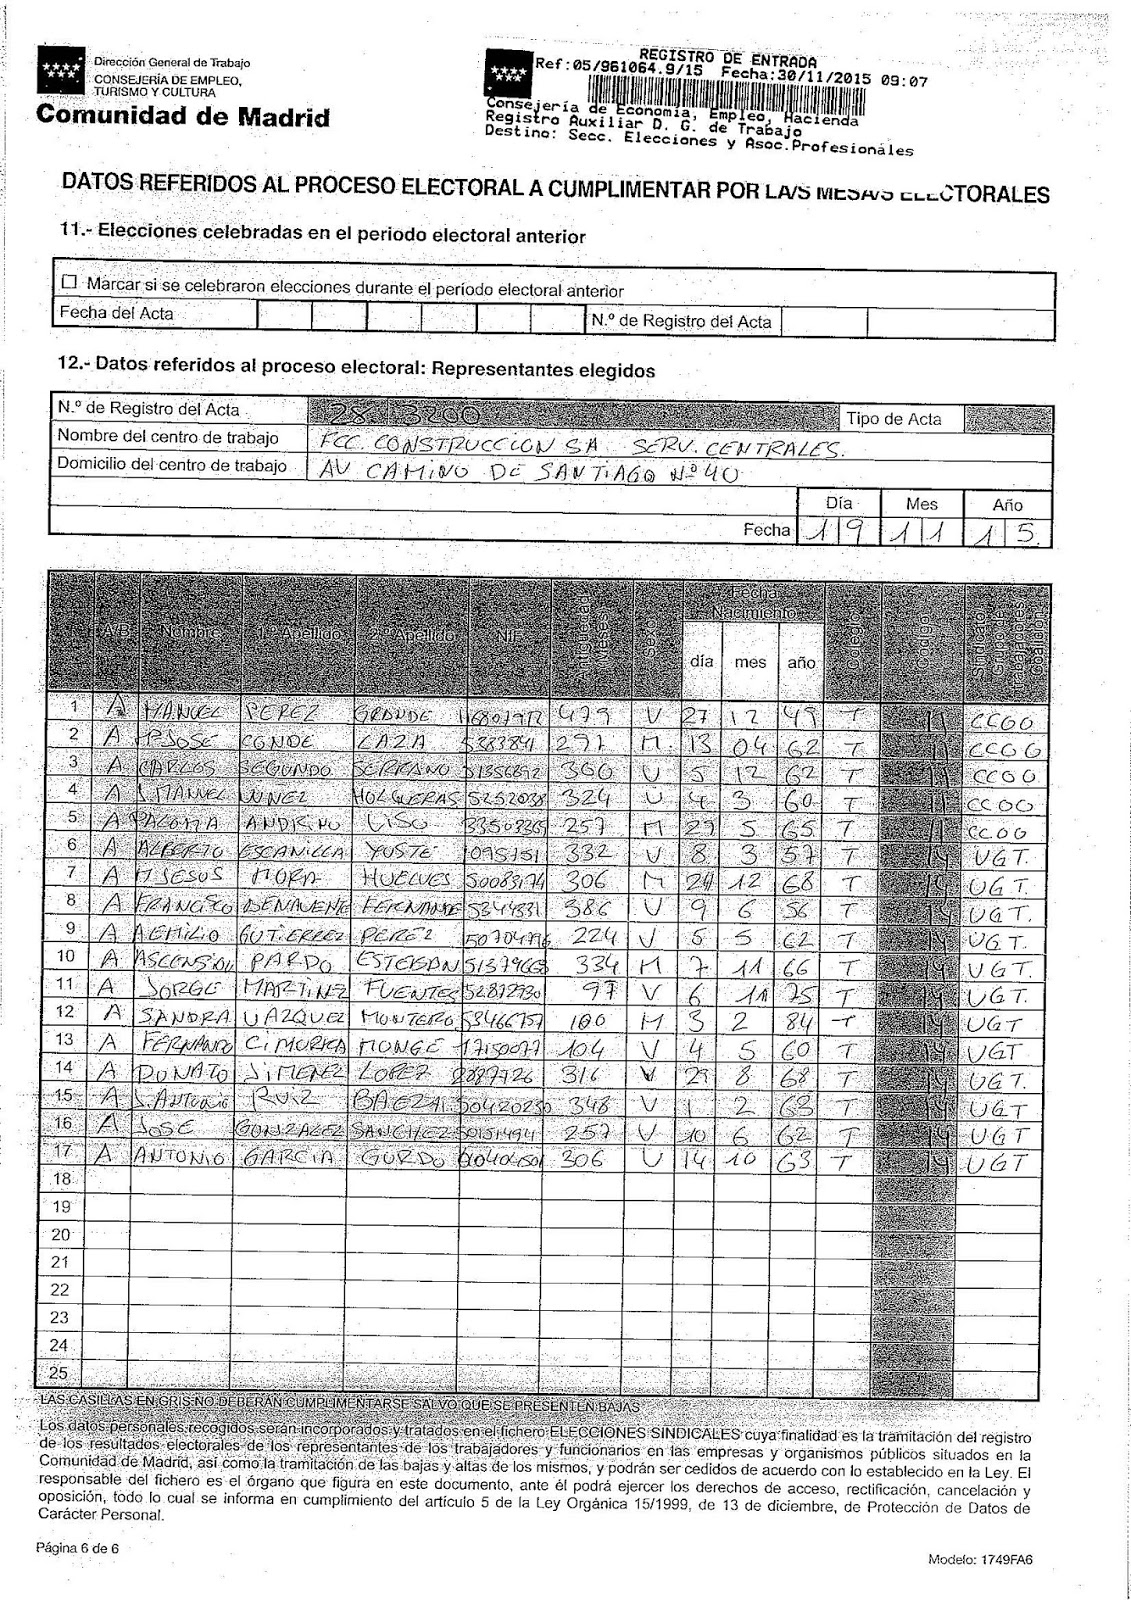 Dirección General de Trabajo
CONSEJERÍA DE EMPLEO,
TURISMO Y CULTURA
Comunidad de Madrid
REGISTRO DE ENTRADA
Ref:05/961064.9/15 Fecha:30/11/2015 09:07
Consejería de Economía, Empleo, Hacienda
Registro Auxiliar D. G. de Trabajo
Destino: Secc. Elecciones y Asoc.Profesionales
DATOS REFERIDOS AL PROCESO ELECTORAL A CUMPLIMENTAR POR LA/S MESA/S ELECTORALES
11.- Elecciones celebradas en el periodo electoral anterior
Marcar si se celebraron elecciones durante el período electoral anterior
Fecha del Acta N.º de Registro del Acta
12.- Datos referidos al proceso electoral: Representantes elegidos
N.º de Registro del Acta 28 13200 Tipo de Acta
Nombre del centro de trabajo FCC. CONSTRUCCION SA SERV. CENTRALES.
Domicilio del centro de trabajo AV CAMINO DE SANTIAGO Nº 40
Día Mes Año
Fecha 19 11 15.
A/B Nombre 1.º Apellido 2.º Apellido NIF Antigüedad (Meses) Sexo Fecha Nacimiento día mes año Colegio Código Sindicato Grupo de Trabajadores/ Coalición
1 A MANUEL PEREZ GRANDE 479 V 27 12 49 T 11 CCOO
2 A CONDE LAZA 297 M 13 04 62 T 11 CCOO
3 A CARLOS SEGUNDO SERRANO 360 V 5 12 62 T 11 CCOO
4 A J.MANUEL HOLGUERAS 324 V 4 3 60 T 11 CCOO
5 A PALOMA ANDRINO LISO 257 M 29 5 65 T 11 CCOO
6 A ALBERTO ESCANILLA YUSTE 332 V 8 3 57 T 14 UGT.
7 A MJESUS MORA HUELVES 306 M 24 12 68 T 14 UGT.
8 A FRANCISCO BENAVENTE 386 V 9 6 56 T 14 UGT.
9 A GUTIERREZ PEREZ 224 V 5 5 62 T 14 UGT.
10 A ASCENSION PARDO ESTEBAN 334 M 7 11 66 T 14 UGT.
11 A JORGE MARTINEZ FUENTES 97 V 6 11 75 T 14 UGT.
12 A SANDRA VAZQUEZ MONTERO 100 M 3 2 84 T 14 UGT
13 A FERNANDO MONGE 104 V 4 5 60 T 14 UGT
14 A DONATO JIMENEZ LOPEZ 316 V 29 8 68 T 14 UGT.
15 A J.ANTONIO RUIZ BAEZA 50420230 348 V 1 2 63 T 14 UGT
16 A JOSE GONZALEZ SANCHEZ 257 V 10 6 62 T 14 UGT
17 A ANTONIO GARCIA GORDO 306 V 14 10 63 T 14 UGT
18
19
20
21
22
23
24
25
LAS CASILLAS EN GRIS NO DEBERÁN CUMPLIMENTARSE SALVO QUE SE PRESENTEN BAJAS
Los datos personales recogidos serán incorporados y tratados en el fichero ELECCIONES SINDICALES cuya finalidad es la tramitación del registro
de los resultados electorales de los representantes de los trabajadores y funcionarios en las empresas y organismos públicos situados en la
Comunidad de Madrid, así como la tramitación de las bajas y altas de los mismos, y podrán ser cedidos de acuerdo con lo establecido en la Ley. El
responsable del fichero es el órgano que figura en este documento, ante él podrá ejercer los derechos de acceso, rectificación, cancelación y
oposición, todo lo cual se informa en cumplimiento del artículo 5 de la Ley Orgánica 15/1999, de 13 de diciembre, de Protección de Datos de
Carácter Personal.
Página 6 de 6
Modelo: 1749FA6